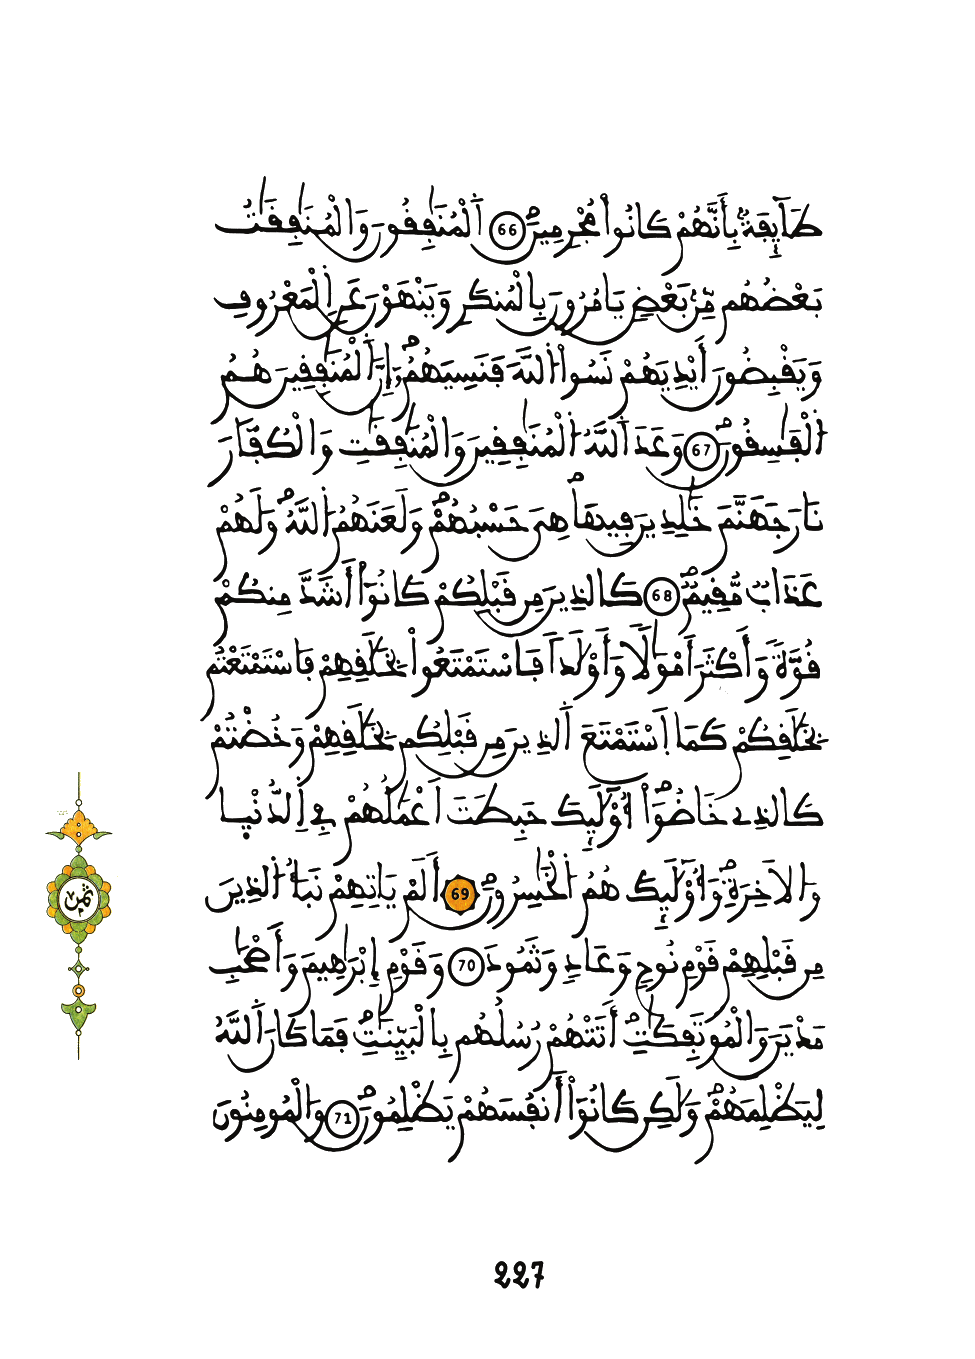 طَآئِفَةَۢ بِأَنَّهُمْ كَانُوا۟ مُجْرِمِينَ 66 ٱلْمُنَٰفِقُونَ وَالْمُنَٰفِقَٰتُ
بَعْضُهُم مِّنۢ بَعْضٖ يَامُرُونَ بِالْمُنكَرِ وَيَنْهَوْنَ عَنِ الْمَعْرُوفِ
وَيَقْبِضُونَ أَيْدِيَهُمْ نَسُوا۟ اللَّهَ فَنَسِيَهُمُۥٓ إِنَّ ٱلْمُنَٰفِقِينَ هُمُ
ٱلْفَٰسِقُونَ 67 وَعَدَ ٱللَّهُ ٱلْمُنَٰفِقِينَ وَالْمُنَٰفِقَٰتِ وَالْكُفَّارَ
نَارَ جَهَنَّمَ خَٰلِدِينَ فِيهَا هِيَ حَسْبُهُمْ وَلَعَنَهُمُ اللَّهُ وَلَهُمْ
عَذَابٌ مُّقِيمٌ 68 كَالذِينَ مِن قَبْلِكُمْ كَانُوٓا۟ أَشَدَّ مِنكُمْ
قُوَّةٗ وَأَكْثَرَ أَمْوَٰلٗا وَأَوْلَٰدٗا فَاسْتَمْتَعُوا۟ بِخَلَٰقِهِمْ فَاسْتَمْتَعْتُم
بِخَلَٰقِكُمْ كَمَا اَسْتَمْتَعَ ٱلذِينَ مِن قَبْلِكُم بِخَلَٰقِهِمْ وَخُضْتُمْ
كَالذِے خَاضُوٓا۟ أُو۟لَٰٓئِكَ حَبِطَتَ اَعْمَٰلُهُمْ فِے اِ۬لدُّنْيٖا
وَالَاخِرَةِ وَأُو۟لَٰٓئِكَ هُمُ ٱلْخَٰسِرُونَ 69 أَلَمْ يَاتِهِمْ نَبَأُ ٱلذِينَ
مِن قَبْلِهِمْ قَوْمِ نُوحٖ وَعَادٖ وَثَمُودَ 70 وَقَوْمِ إِبْرَٰهِيمَ وَأَصْحَٰبِ
مَدْيَنَ وَالْمُوتَفِكَٰتِ أَتَتْهُمْ رُسُلُهُم بِالْبَيِّنَٰتِ فَمَا كَانَ ٱللَّهُ
لِيَظْلِمَهُمْ وَلَٰكِن كَانُوٓا۟ أَنفُسَهُمْ يَظْلِمُونَ 71 وَالْمُومِنُونَ
ثمن
227